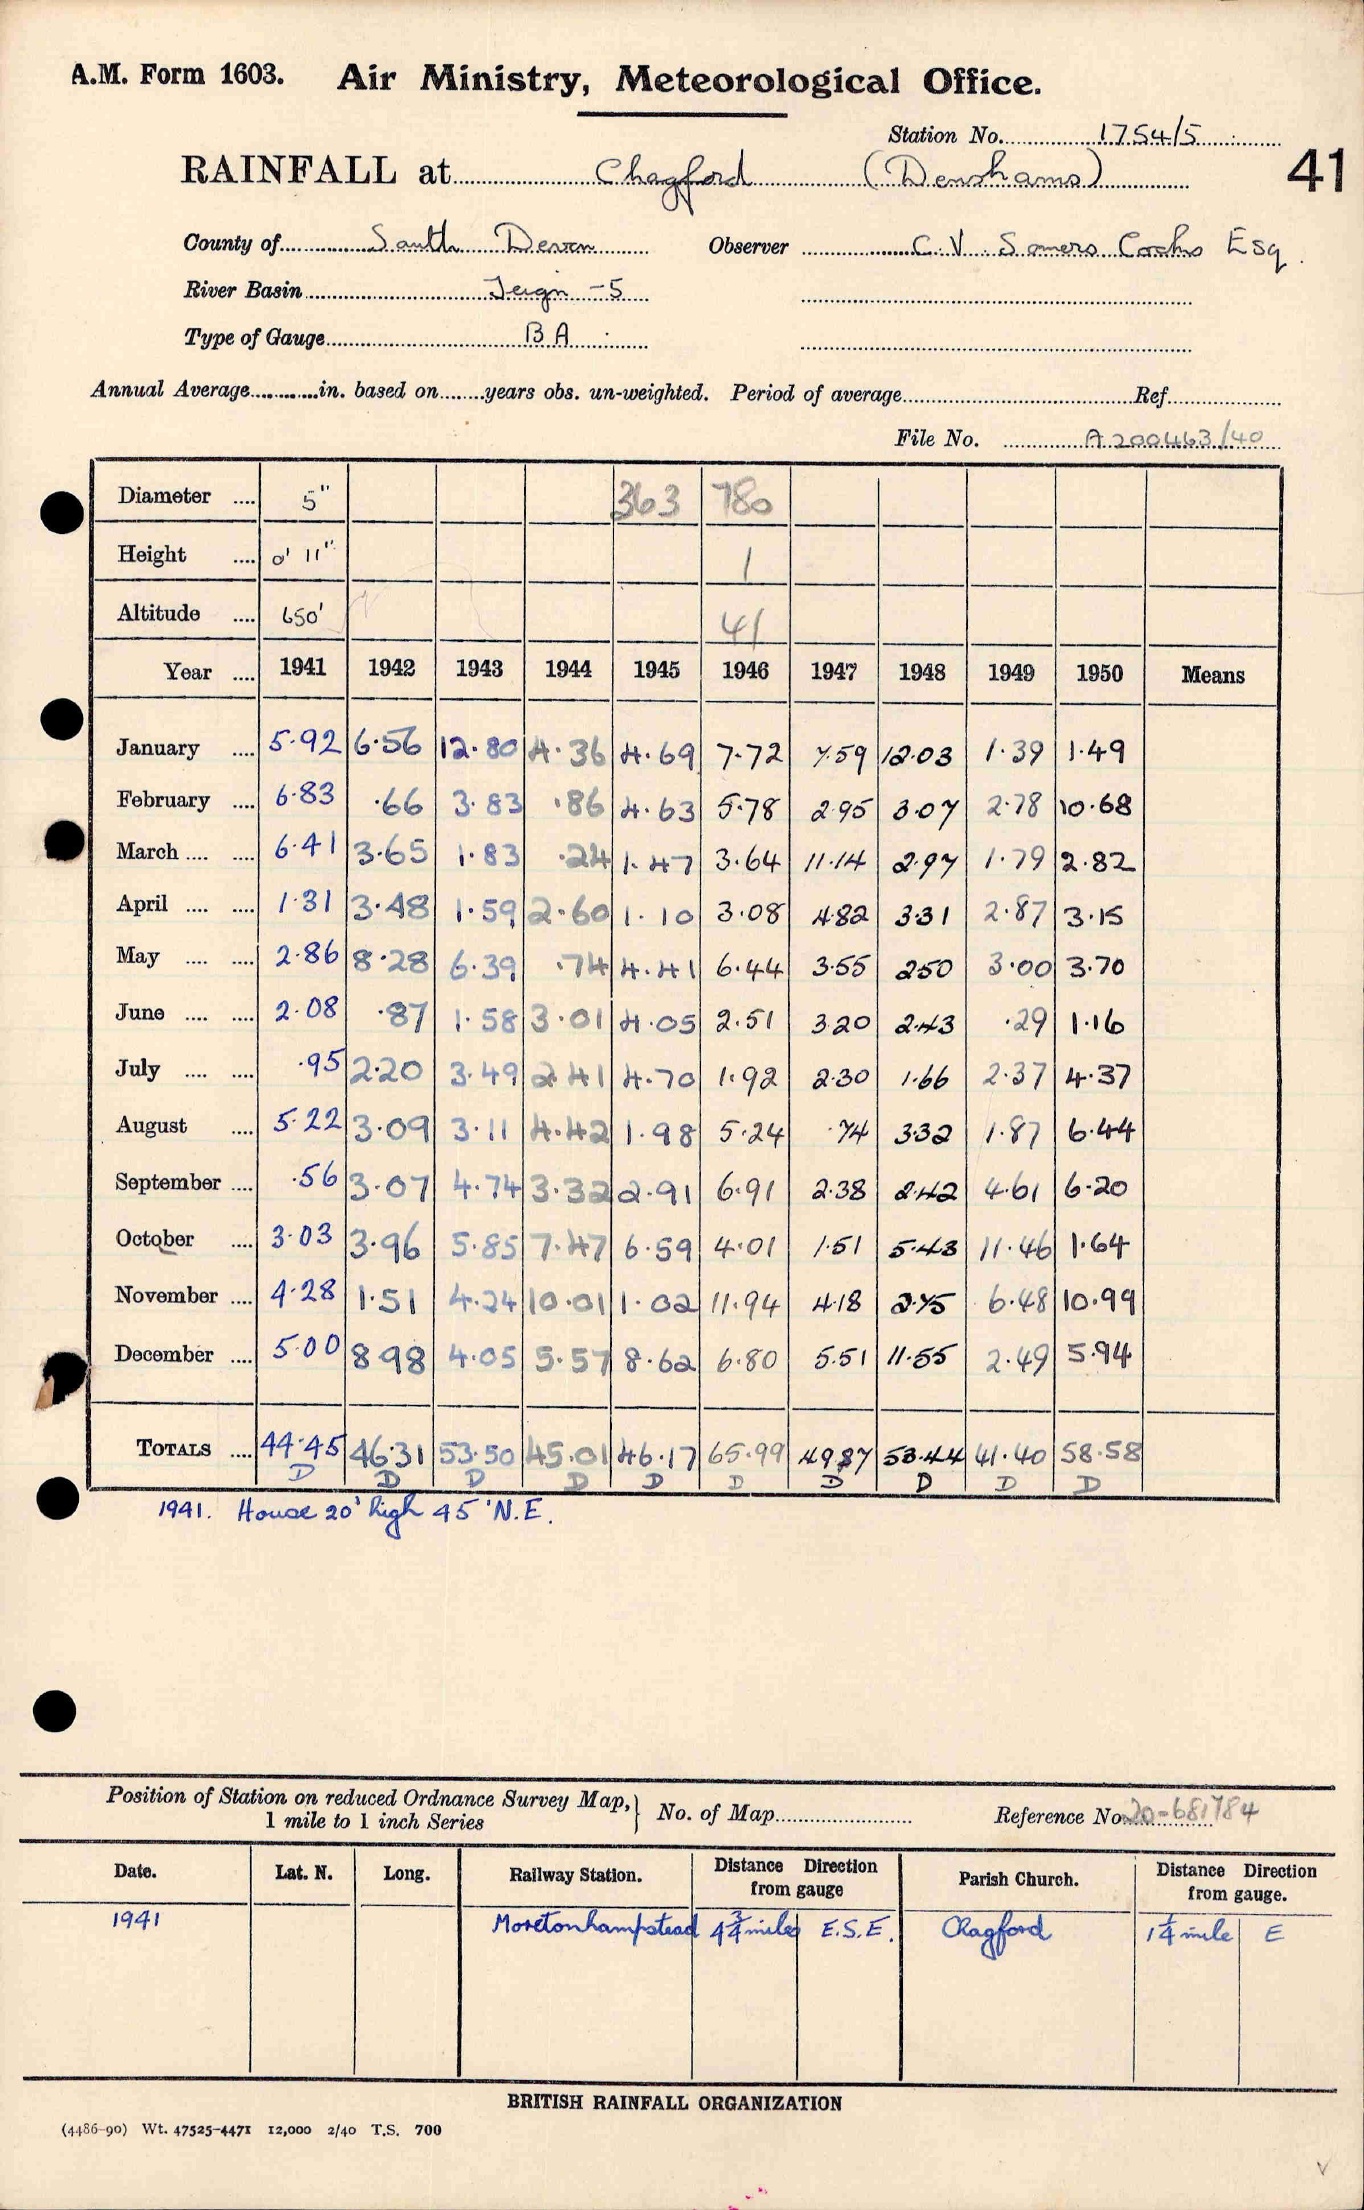 A.M. Form 1603. Air Ministry, Meteorological Office.
Station No. 1754/5
41
RAINFALL at Chagford (Denshams)
County of South Devon Observer C. V. Somers Cocks Esq.
River Basin Teign -5
Type of Gauge BA
Annual Average in. based on years obs. un-weighted. Period of average Ref.
File No. A200463/40
Diameter .... 5" 363 780
Height .... 0' 11" 1
Altitude .... 650' 41
Year .... 1941 1942 1943 1944 1945 1946 1947 1948 1949 1950 Means
January .... 5.92 6.56 12.80 4.36 4.69 7.72 7.59 12.03 1.39 1.49
February .... 6.83 .66 3.83 .86 4.63 5.78 2.95 3.07 2.78 10.68
March .... .... 6.41 3.65 1.83 .24 1.47 3.64 11.14 2.97 1.79 2.82
April .... .... 1.31 3.48 1.59 2.60 1.10 3.08 4.82 3.31 2.87 3.15
May .... .... 2.86 8.28 6.39 .74 4.41 6.44 3.55 2.50 3.00 3.70
June .... .... 2.08 .87 1.58 3.01 4.05 2.51 3.20 2.43 .29 1.16
July .... .... .95 2.20 3.49 2.41 4.70 1.92 2.30 1.66 2.37 4.37
August .... 5.22 3.09 3.11 4.42 1.98 5.24 .74 3.32 1.87 6.44
September .... .56 3.07 4.74 3.32 2.91 6.91 2.38 2.42 4.61 6.20
October .... 3.03 3.96 5.85 7.47 6.59 4.01 1.51 5.43 11.46 1.64
November .... 4.28 1.51 4.24 10.01 1.02 11.94 4.18 2.75 6.48 10.99
December .... 5.00 8.98 4.05 5.57 8.62 6.80 5.51 11.55 2.49 5.94
TOTALS .... 44.45 46.31 53.50 45.01 46.17 65.99 49.87 53.44 41.40 58.58
D D D D D D D D D D
1941. House 20' high 45' N.E.
Position of Station on reduced Ordnance Survey Map,
1 mile to 1 inch Series } No. of Map Reference No. 20-681784
Date. Lat. N. Long. Railway Station. Distance Direction from gauge Parish Church. Distance Direction from gauge.
1941 Moretonhampstead 4¾ miles E.S.E. Chagford 1¼ mile E
BRITISH RAINFALL ORGANIZATION
(4486-90) Wt. 47525-4471 12,000 2/40 T.S. 700